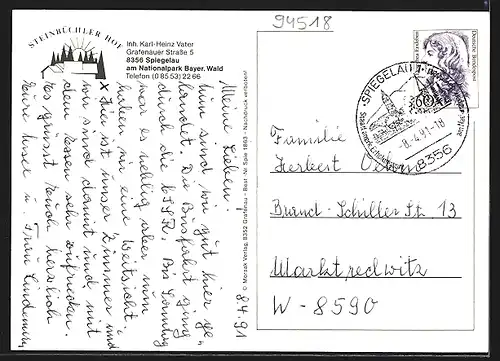 94518
STEINBÜCHLER HOF
Inh. Karl-Heinz Vater
Grafenauer Straße 5
8356 Spiegelau
am Nationalpark Bayer. Wald
Telefon (0 85 53) 22 66
8.4.91
Meine Lieben!
Nun sind wir gut hier ge-
landet. Die Busfahrt ging
durch die ČSSR. Bis Sonntag
war es neblig aber nun
haben wir eine Weitsicht!
x Hier ist unser Zimmer und
wir sind damit und mit
dem Essen sehr zufrieden.
Es grüsst Euch herzlich
Eure Inse u. Frau Lindemann
© Morsak Verlag, 8352 Grafenau - Best.-Nr. Spie 1863 - Nachdruck verboten!
Deutsche Bundespost
SPIEGELAU 1
-8.4.91-18
8356
Familie
Herbert
Brand-Schiller St. 13
Marktredwitz
W-8590